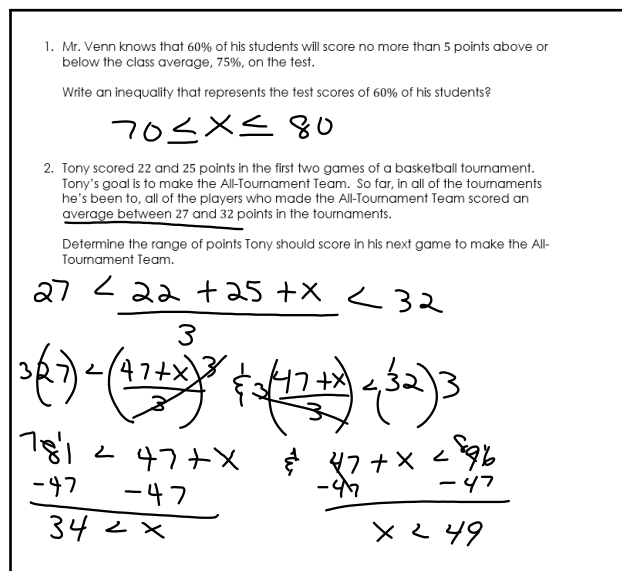 1. Mr. Venn knows that 60% of his students will score no more than 5 points above or
below the class average, 75%, on the test.
Write an inequality that represents the test scores of 60% of his students?
70 ≤ X ≤ 80
2. Tony scored 22 and 25 points in the first two games of a basketball tournament.
Tony's goal is to make the All-Tournament Team. So far, in all of the tournaments
he's been to, all of the players who made the All-Tournament Team scored an
average between 27 and 32 points in the tournaments.
Determine the range of points Tony should score in his next game to make the All-
Tournament Team.
27 < 22 + 25 + X < 32
3
3(27) < (47+X / 3) 3 & 3(47+X / 3) < (32) 3
81 < 47 + X & 47 + X < 96
-47 -47 -47 -47
34 < X X < 49